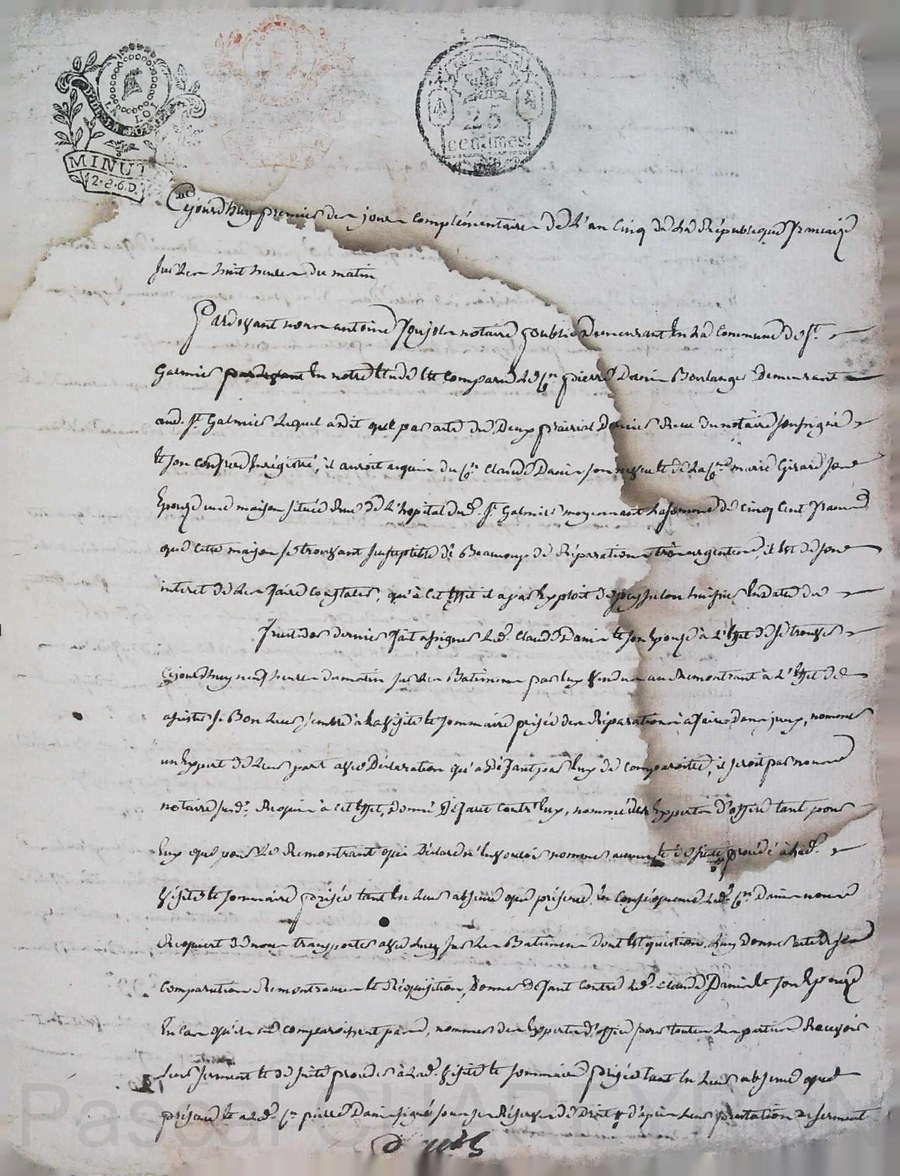 LA LOI
MINUT
12. S. 6. D.
25
centimes
Cejourd'huy premier des jours complémentaires de l'an cinq de la République française
sur les huit heures du matin
Pardevant nous antoine notaire public demeurant en la commune de St.
Galmier en notre étude Est comparu le Cn. pierre Danier Boulanger demeurant
aud. St Galmier Lequel a dit que par acte du Deux prairial Dernier Reçu du notaire soussigné
et son confrere Enregistré, il auroit acquis du Cn. Claude Danier son et de la Cne. marie Girard son
Epouse une maison située Rue de l'hopital dud. St Galmier moyennant la somme de cinq cent francs
que cette maison se trouvant susceptible de Beaucoup de Réparations très urgentes, il est de son
interet de les faire constater, qu'à cet effet il a par Exploit de huissier En date du
fructidor dernier fait assigner led. Claude Danier et son Epouse à l'effet de se trouver
Cejourd'huy neuf heures du matin sur les Batimens par eux vendus au Remontrant à l'effet de
assister si Bon leur semble à la visite et sommaire prisée des Réparations à faire dans iceux, nommer
un Expert de leur part avec Déclaration qu'a défaut par Eux de comparoitre, il seroit par nous
notaire susd. Requis à cet effet, donné Défaut contre eux, nommé des Experts d'office tant pour
Eux que pour le Remontrant qui Déclare n'en vouloir nommer aucun et de suite procédé à lad.
visite et sommaire prisée tant en leur absence que présence, En conséquence led. Cn. Danier nous
Requiert de nous transporter avec luy sur les Batimens dont est question, luy donner acte de sa
comparution Remontrance et Réquisition, Donner défaut contre led. Claude Danier et son Epouse
En cas qu'ils ne comparoissent pas, nommer des Experts d'office pour toutes les parties Recevoir
leur serment et de suite procéder à lad. visite et sommaire prisée tant en leur absence que
présence et a led. Cn. pierre Danier signé sous ses Réserves de Droit et d'après leur prestation de serment